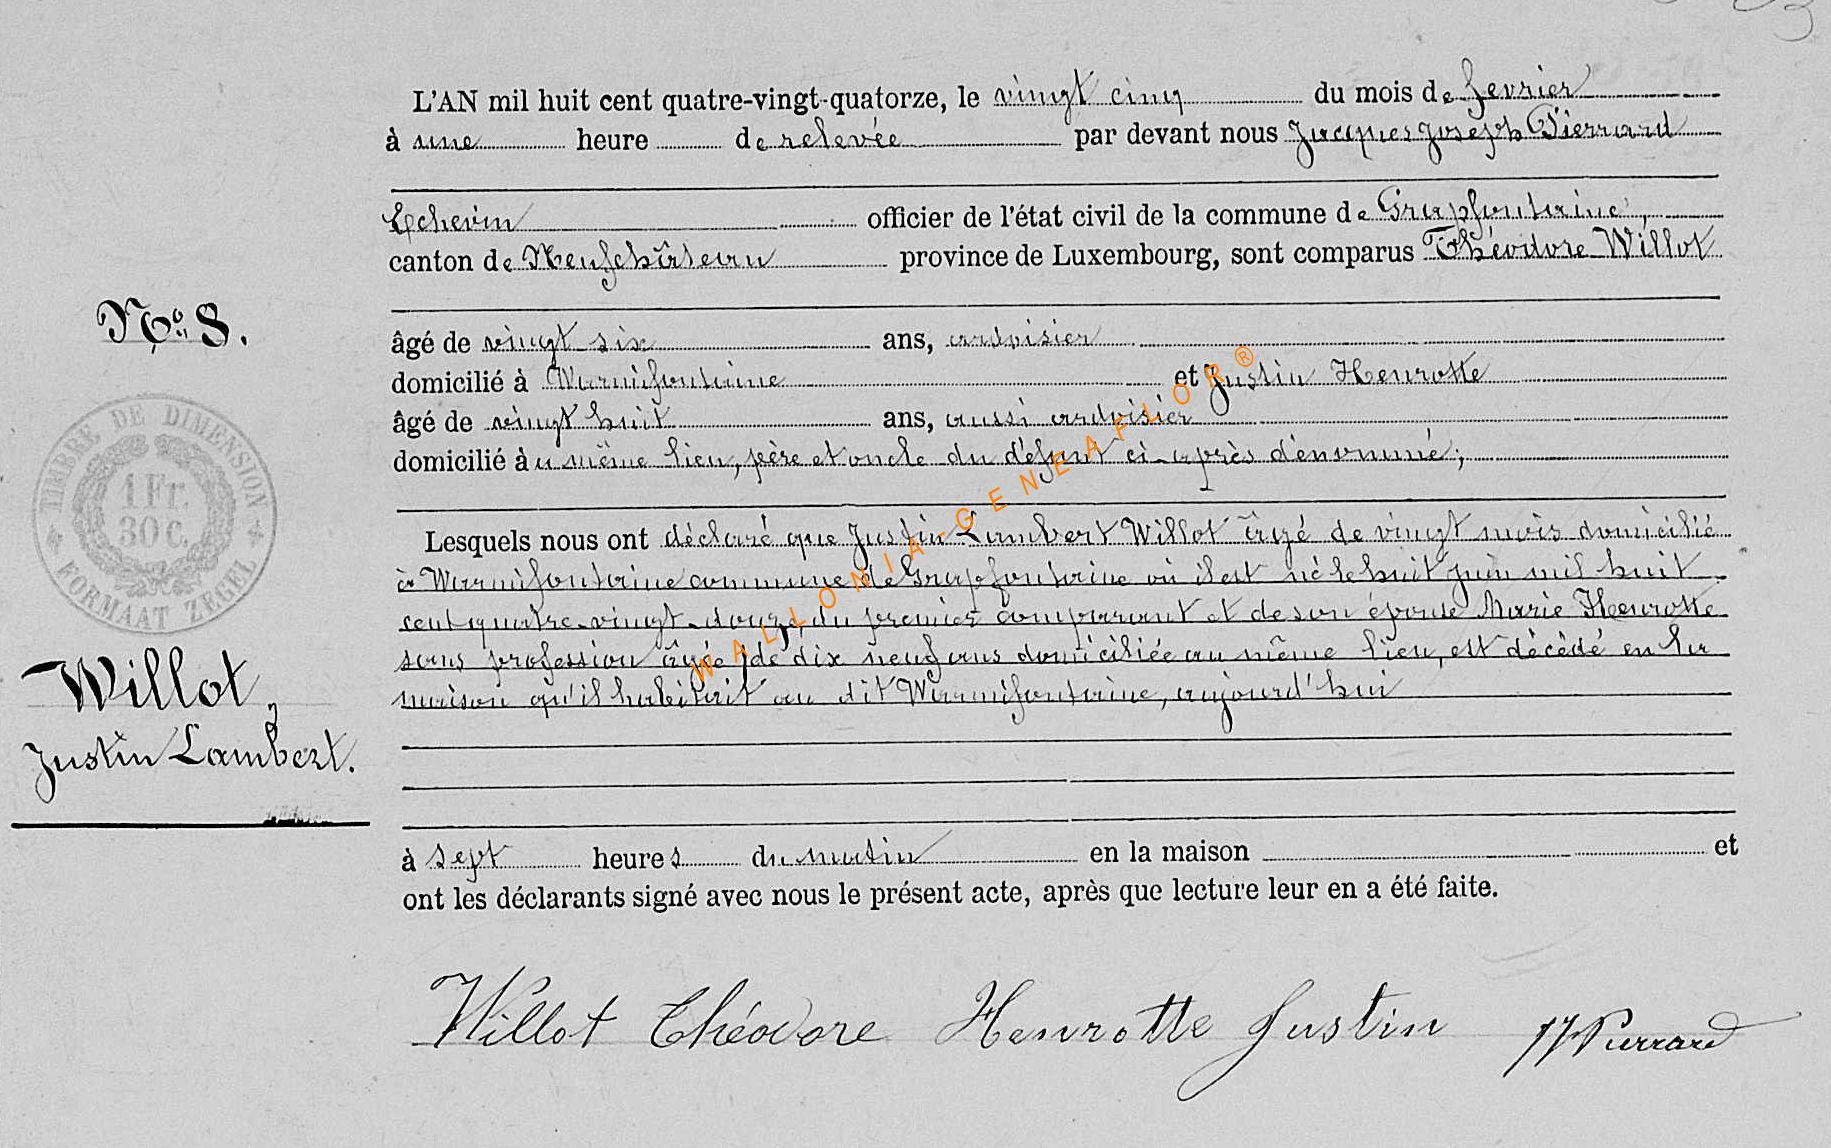 L'AN mil huit cent quatre-vingt-quatorze, le vingt cinq du mois de fevrier
à une heure de relevée par devant nous Jacques Joseph Pierrard
Echevin officier de l'état civil de la commune de Grapfontaine,
canton de Neufchâteau province de Luxembourg, sont comparus Théodore Willot
No. 8.
âgé de vingt six ans, ardoisier
domicilié à Warmifontaine et Justin Henrotte
âgé de vingt huit ans, aussi ardoisier
domicilié au même lieu, père et oncle du défunt ci-après dénommé;
TIMBRE DE DIMENSION
1 Fr.
30 C.
FORMAAT ZEGEL
Lesquels nous ont déclaré que Justin Lambert Willot âgé de vingt mois domicilié
à Warmifontaine commune de Grapfontaine où il est né le huit juin mil huit
cent quatre-vingt-douze, du premier comparant et de son épouse Marie Henrotte
sans profession âgée de dix neuf ans domiciliée au même lieu, est décédé en la
maison qu'il habitait au dit Warmifontaine, aujourd'hui
Willot,
Justin Lambert.
à sept heures du matin en la maison et
ont les déclarants signé avec nous le présent acte, après que lecture leur en a été faite.
Willot Théodore Henrotte Justin JJ Pierrard
WALLONIA-GENEAFLOR®